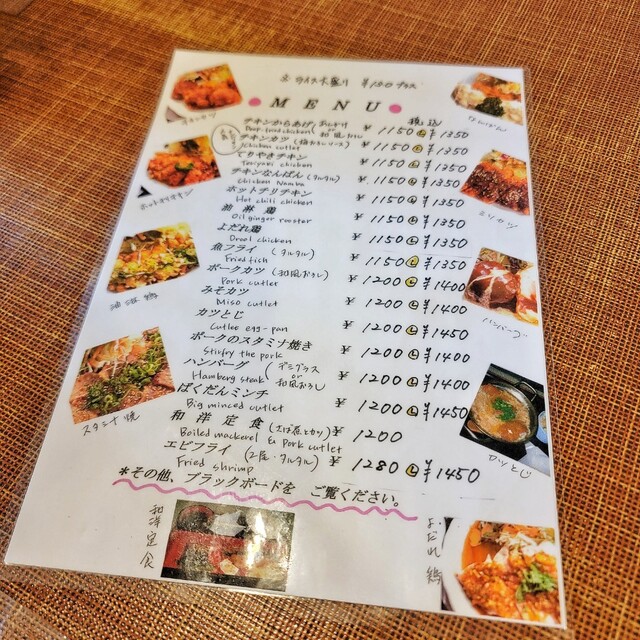 ライス大盛り ¥100プラス
MENU
税込
チキンからあげ
Deep-fried chicken
¥1150 Ⓛ¥1350
チキンカツ (梅おろしソース)
Chicken cutlet
¥1150 Ⓛ¥1350
てりやきチキン
Teriyaki chicken
¥1150 Ⓛ¥1350
チキンなんばん (タルタル)
Chicken Nanba
¥1150 Ⓛ¥1350
ホットチリチキン
Hot chili chicken
¥1150 Ⓛ¥1350
油淋鶏
Oil ginger rooster
¥1150 Ⓛ¥1350
よだれ鶏
Drool chicken
¥1150 Ⓛ¥1350
魚フライ (タルタル)
Fried fich
¥1150 Ⓛ¥1350
ポークカツ (和風おろし)
Pork cutlet
¥1200 Ⓛ¥1400
みそカツ
Miso cutlet
¥1200 Ⓛ¥1400
カツとじ
Cutlee egg-pan
¥1200 Ⓛ¥1450
ポークのスタミナ焼き
Stirfry the pork
¥1200 Ⓛ¥1400
ハンバーグ (デミグラス or 和風おろし
Hamberg steak
¥1200 Ⓛ¥1400
ばくだんミンチ
Big minced cutlet
¥1200 Ⓛ¥1450
和洋定食 (さば煮とカツ)
Boiled mackerel & Pork cutlet
¥1200
エビフライ (2尾・タルタル)
Fried shrimp
¥1280 Ⓛ¥1450
*その他、ブラックボードを ご覧ください。
チキンカツ
ホットチリチキン
油淋鶏
スタミナ焼
和洋定食
なんばん
ミソカツ
ハンバーグ
カツとじ
よだれ鶏